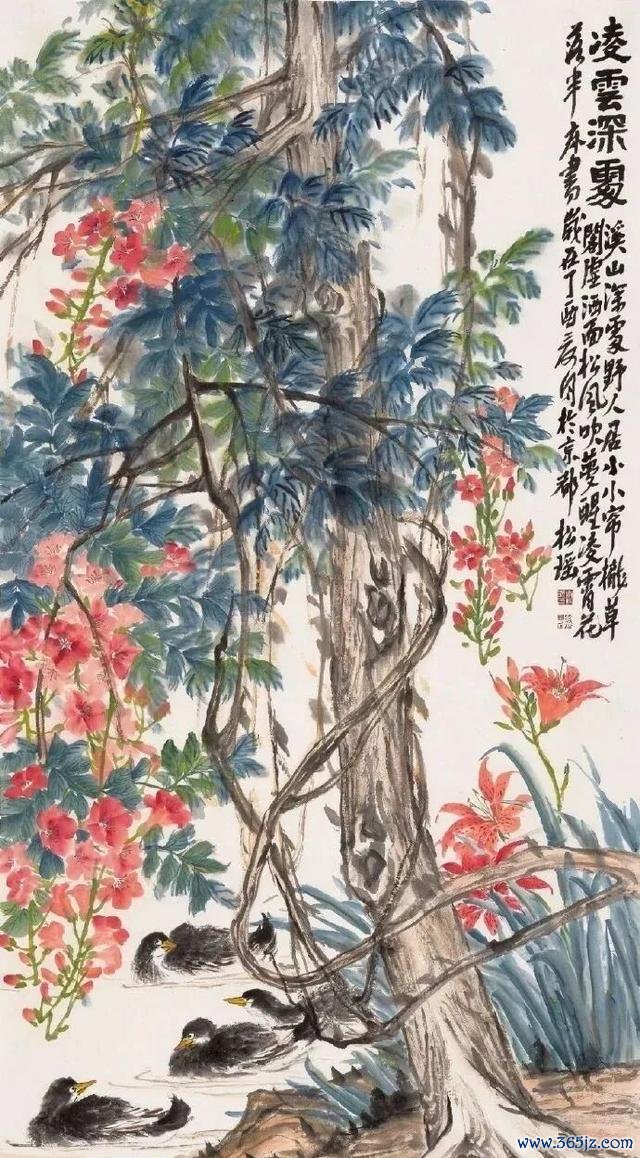 凌雲深處
溪山深處野人居小小帘櫳草
閣虛洒面松風吹夢醒凌霄花
落半床書歲在丁酉月於京都松瑤
www.365jz.com